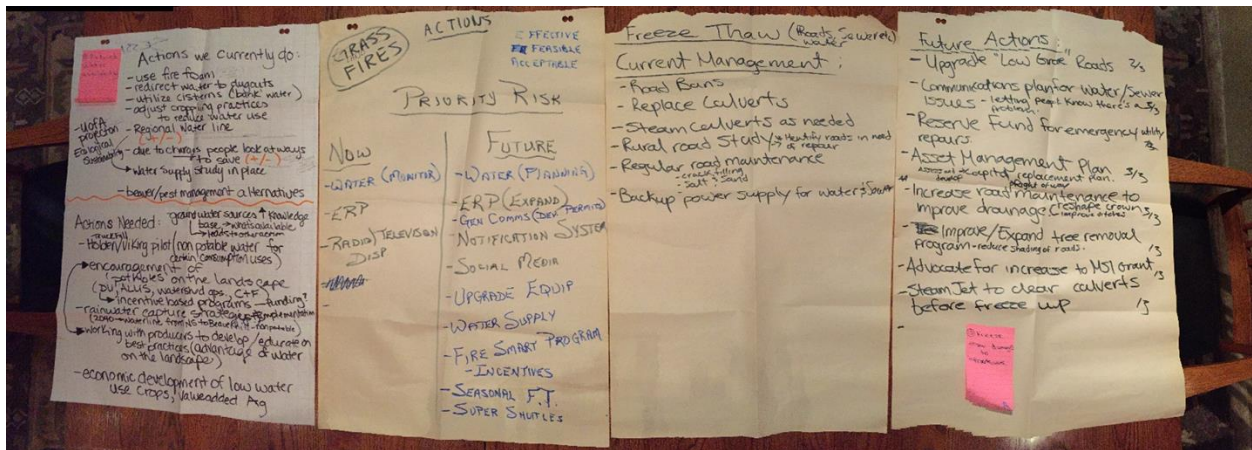 Actions we currently do:
- use fire foam
- redirect water to dugouts
- utilize cisterns (bank water)
- adjust cropping practices
to reduce water use
- Regional water line
(+/-)
- UofA
projection
Ecological
Sustainability
- due to changes people look at ways
to save (+/-)
water supply study in place
- beaver/pest management alternatives
Actions Needed:
ground water sources ↑ knowledge
base → what's available
- Holden/Viking pilot (non potable water for
certain consumption uses)
encouragement of
"potholes" on the landscape
(DU, ALUS, watershed
incentive based programs - funding?
- rainwater capture strategies
working with producers to develop/educate on
best practices (advantage of water
on the landscape)
- economic development of low water
use crops, value added Ag
GRASS
FIRES
ACTIONS
EFFECTIVE
FEASIBLE
ACCEPTABLE
PRIORITY RISK
NOW
- WATER (MONITOR)
- ERP
- RADIO/TELEVISION
DISP
-
FUTURE
- WATER (PLANNING)
- ERP (EXPAND)
- GEN COMMS (DEV PERMITS)
- NOTIFICATION SYSTEM
- SOCIAL MEDIA
- UPGRADE EQUIP
- WATER SUPPLY
- FIRE SMART PROGRAM
- INCENTIVES
- SEASONAL F.T.
- SUPER SHUTTLES
Freeze Thaw (Roads, Sewer etc)
water
Current Management:
- Road Bans
- Replace Culverts
- Steam Culverts as needed
- Rural road Study → identify roads in need
of repair
- Regular road maintenance
- crack filling
- Salt & Sand
- Backup power supply for water & Sewer
Future Actions
- Upgrade "Low Grade" Roads 2/3
- Communications plan for water/sewer
issues - letting people know there's a 3/3
problem.
- Reserve Fund for emergency utility
repairs.
- Asset Management Plan 3/3
capital replacement plan.
- Increase road maintenance to
improve drainage. reshape crown
improve ditches 3/3
- Improve/Expand tree removal
program - reduce shading of roads. 1/3
- Advocate for increase to MSI Grant 1/3
- Steam Jet to clear culverts
before freeze up 1/3
-